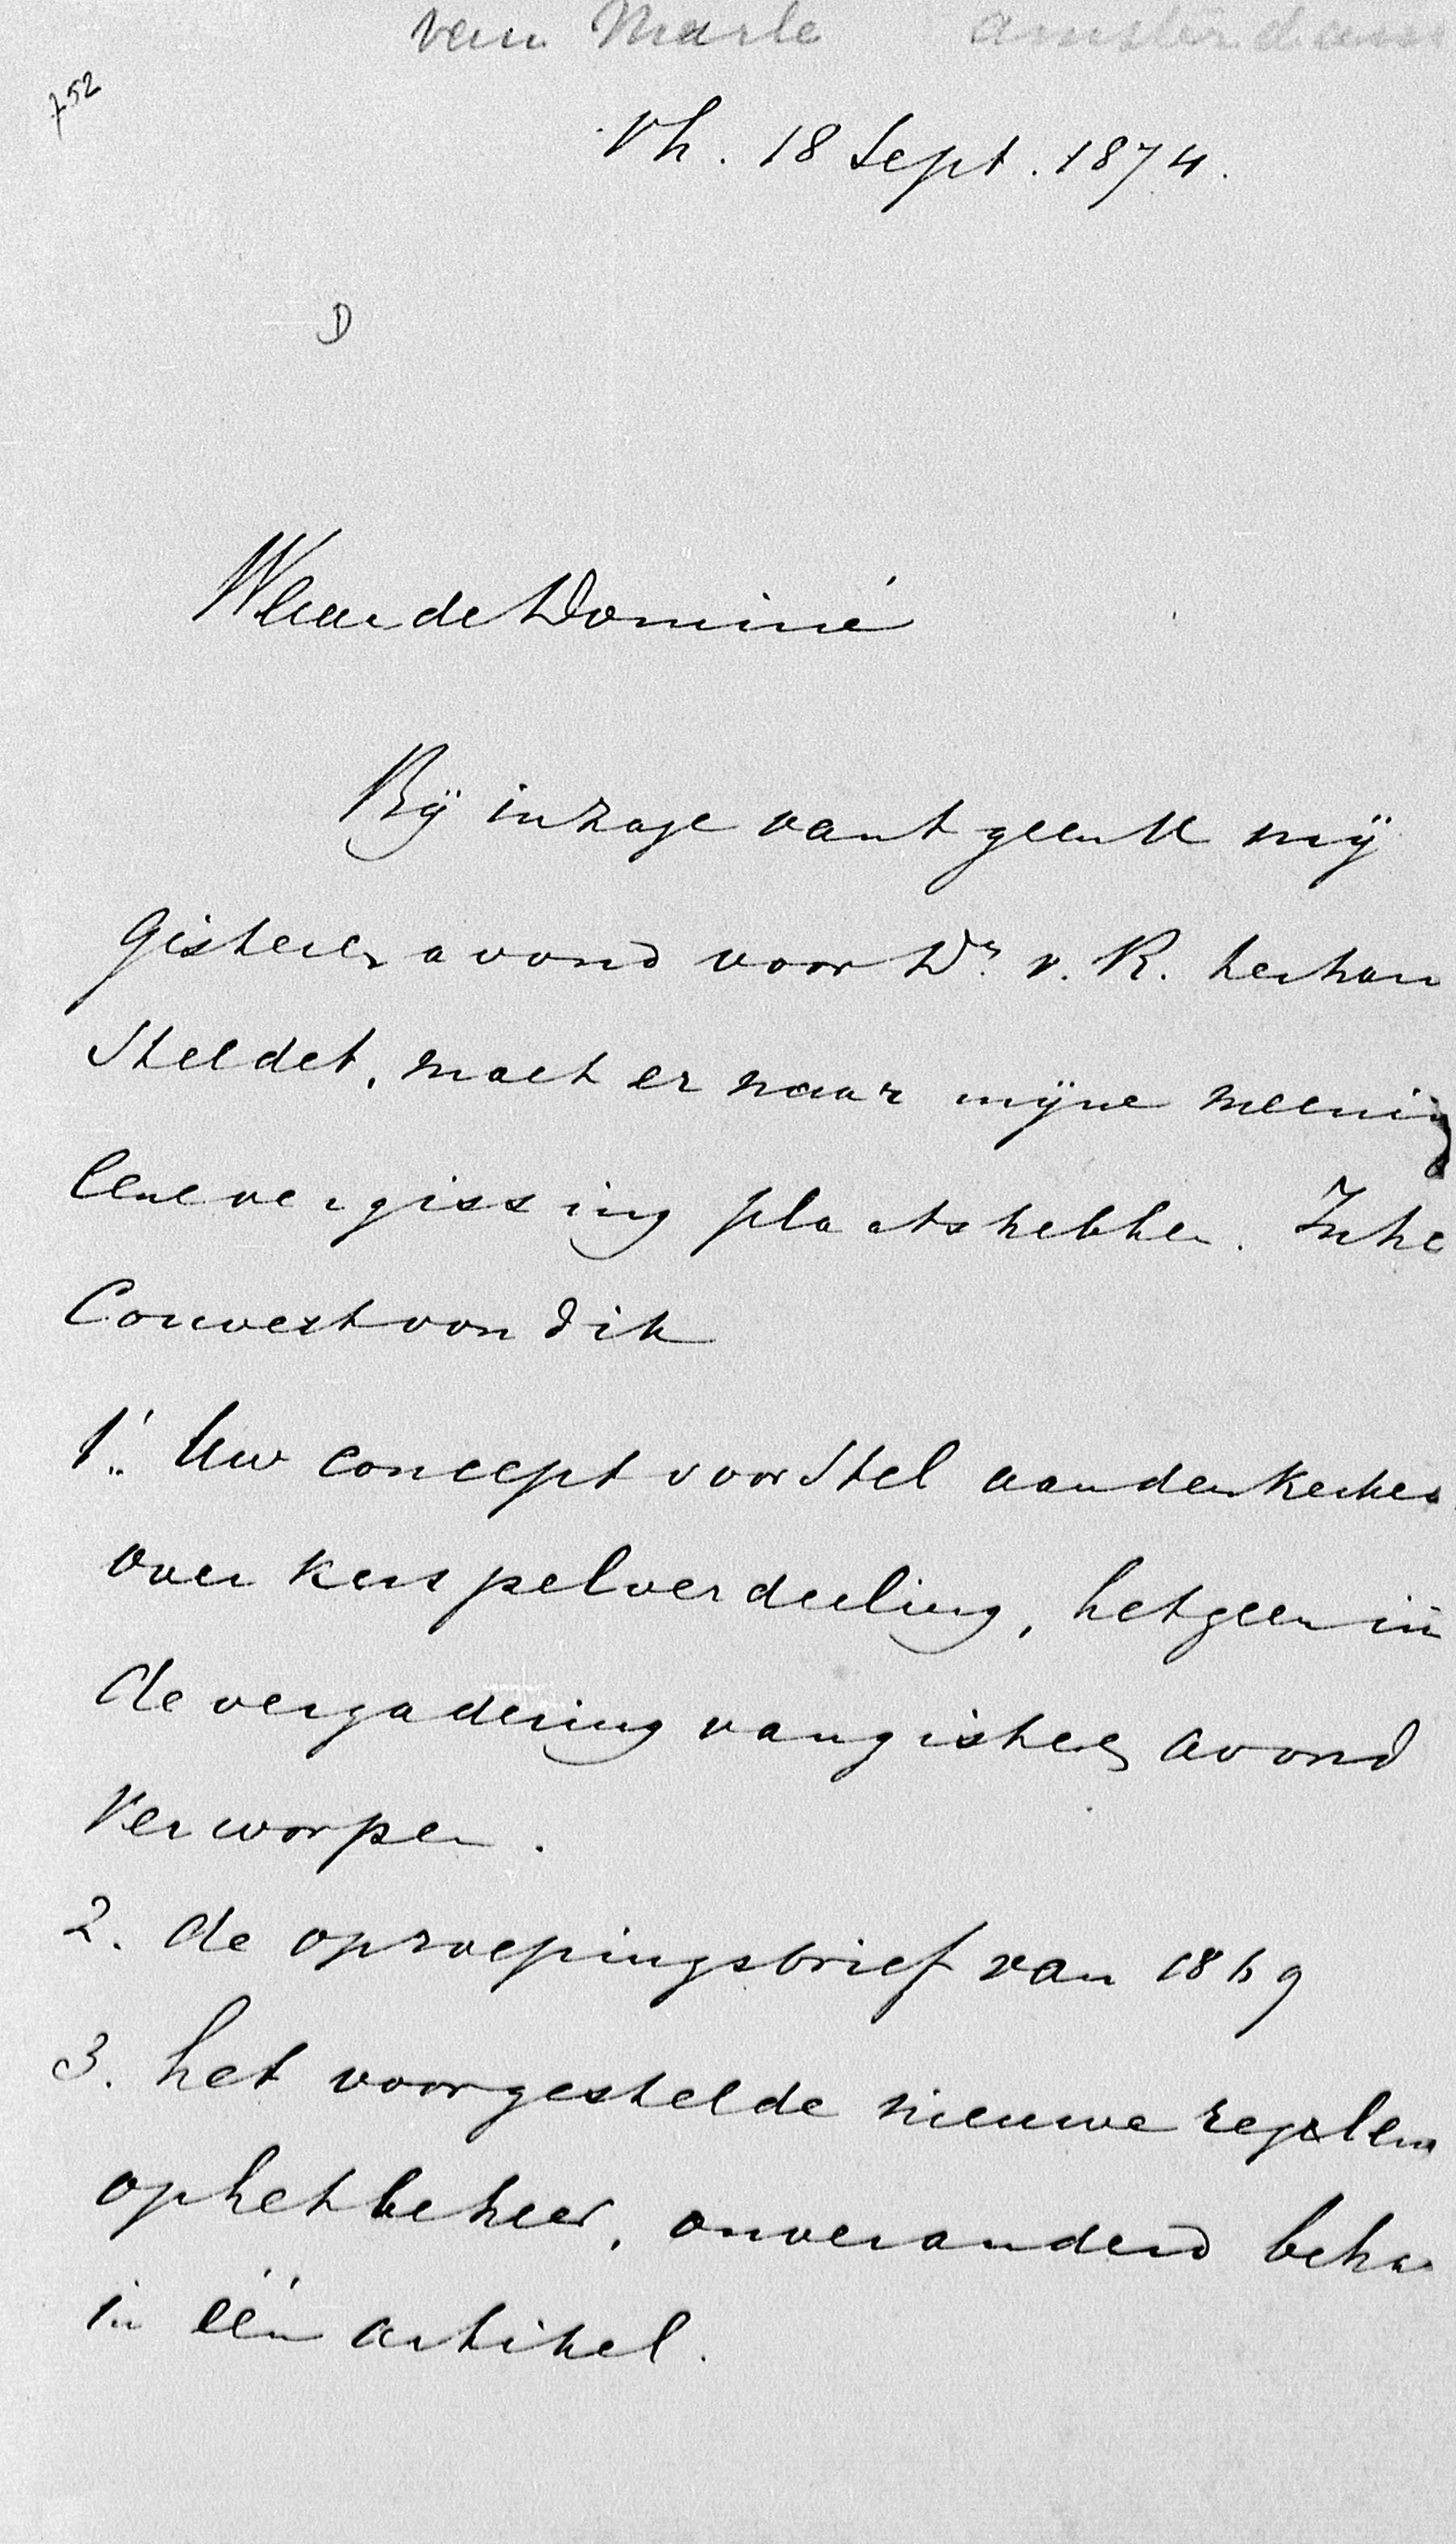 van Marle Amsterdam
752
Vh. 18 Sept. 1874.
D
Waarde Dominé
Bij inzage van 't geen U mij
gisteren avond voor Dr. v. R. ter han
steldet, moet er naar mijne meening
eene vergissing plaats hebben. In he
Convert vond ik
1º. Uw concept voorstel aan den Kerker
over kerspelverdeeling, hetgeen in
de vergadering van gisteren avond
verworpen.
2. de oproepingsbrief van 1869
3. het voorgestelde nieuwe reglem
op het beheer, onveranderd beha
in één artikel.